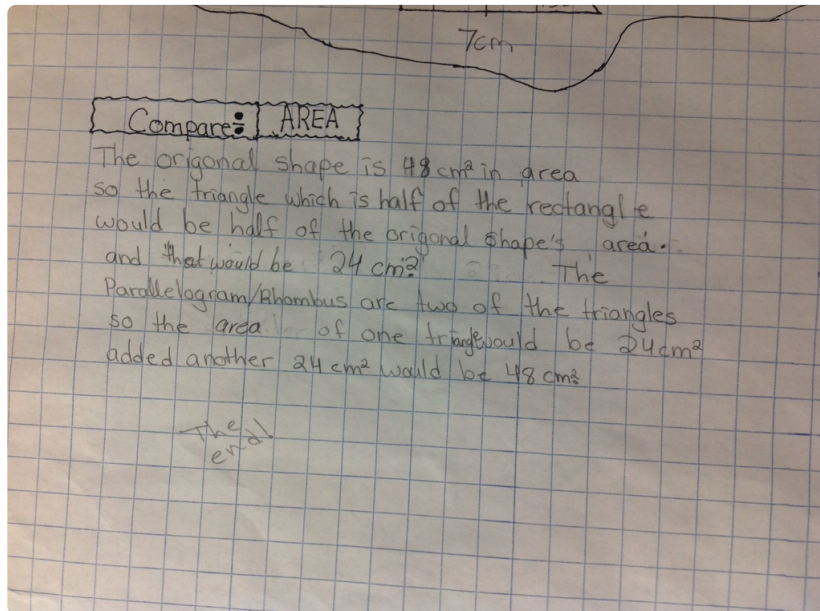 7cm
Compare: AREA
The origonal shape is 48 cm² in area
so the triangle which is half of the rectangle
would be half of the origonal shape's area.
and that would be 24 cm² The
Parallelogram/Rhombus are two of the triangles
so the area of one triangle would be 24cm²
added another 24 cm² would be 48 cm²
The
end!